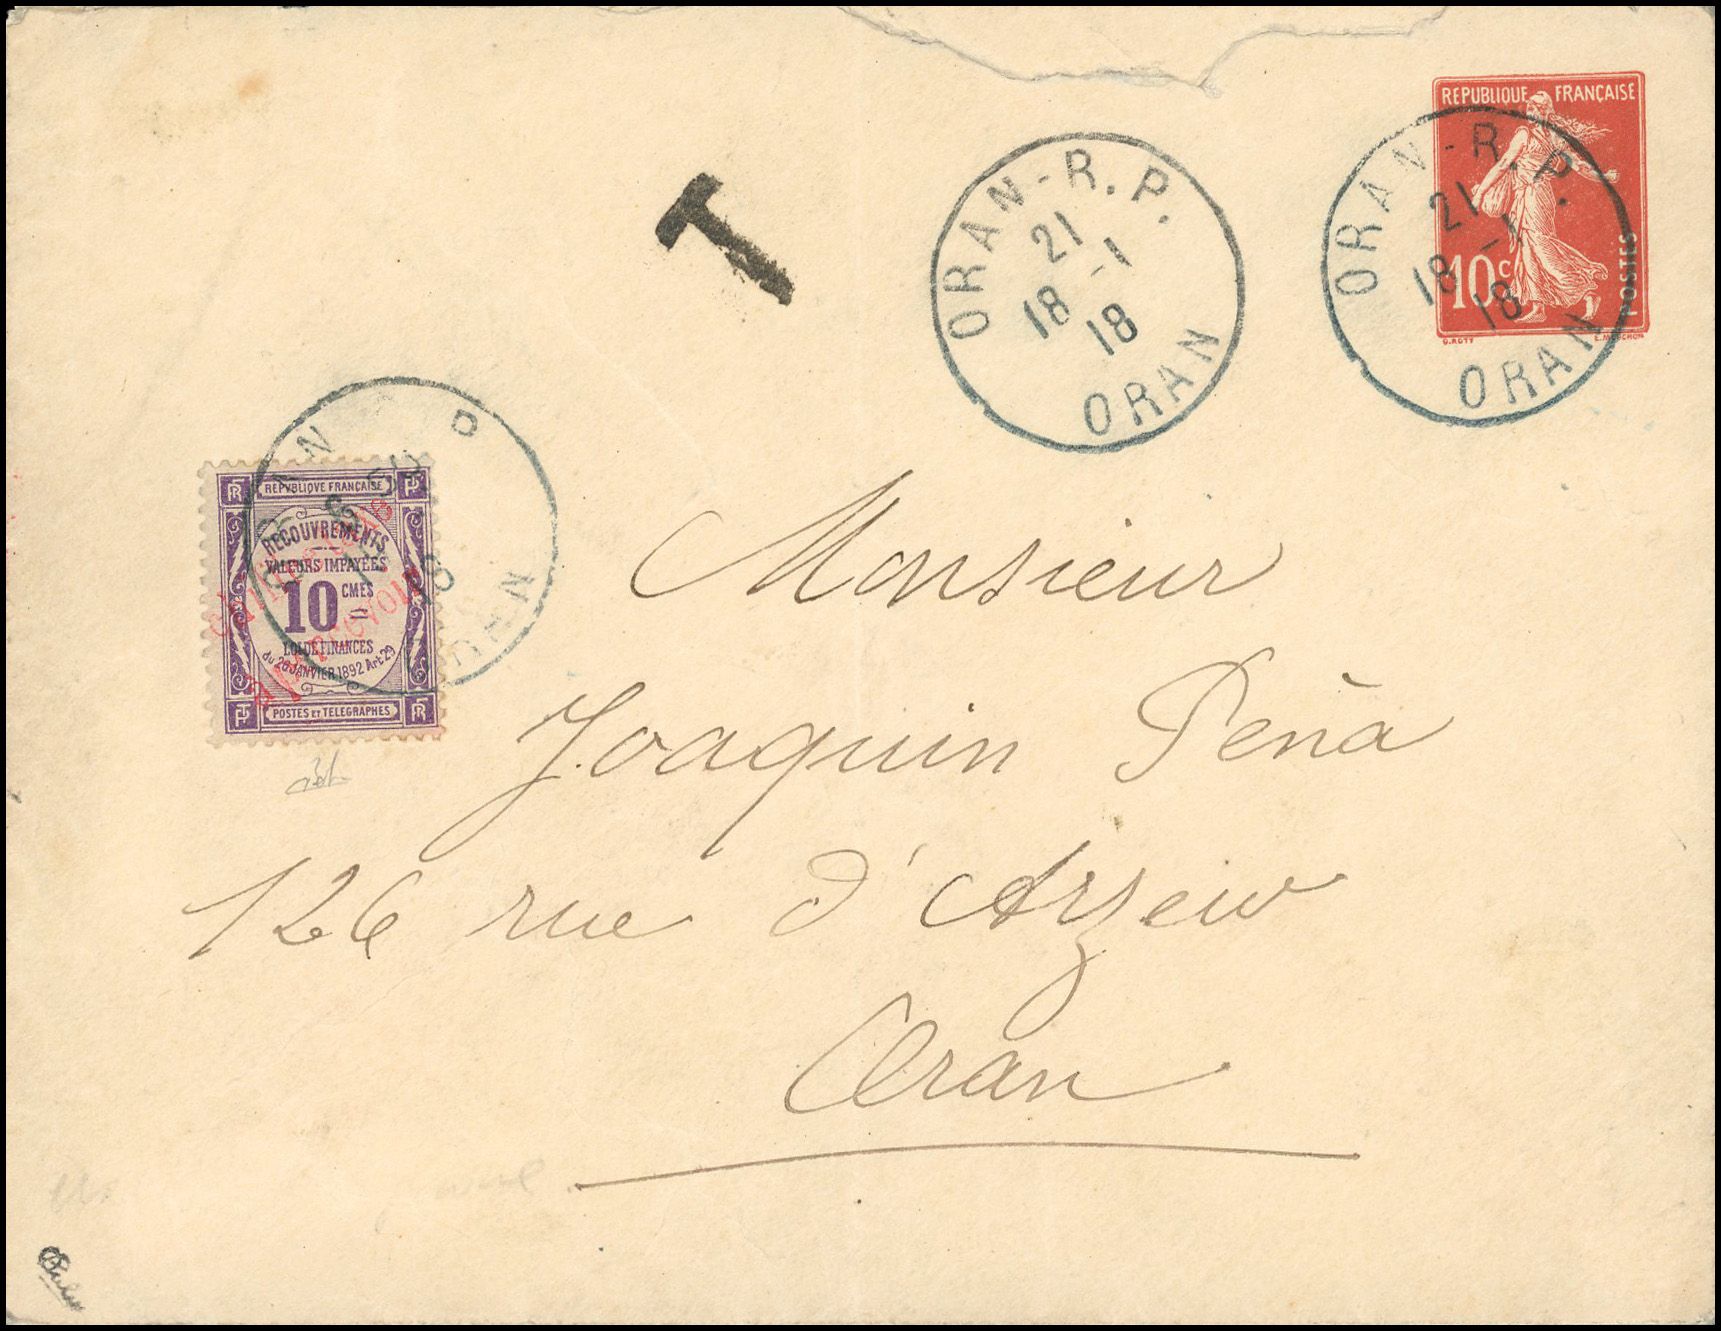 REPUBLIQUE FRANÇAISE
10c
POSTES
O.ROTY
ORAN-R.P.
21
18 -1
18
ORAN
ORAN-R.P.
21
18 -1
18
ORAN
T
REPVBLIQVE FRANÇAISE
RECOUVREMENTS
VALEURS IMPAYÉES
10 CMES
LOI DE FINANCES
du 26 JANVIER 1892 Art 29
POSTES ET TELEGRAPHES
Monsieur
Joaquin Peña
126 rue d'Arzew
Oran